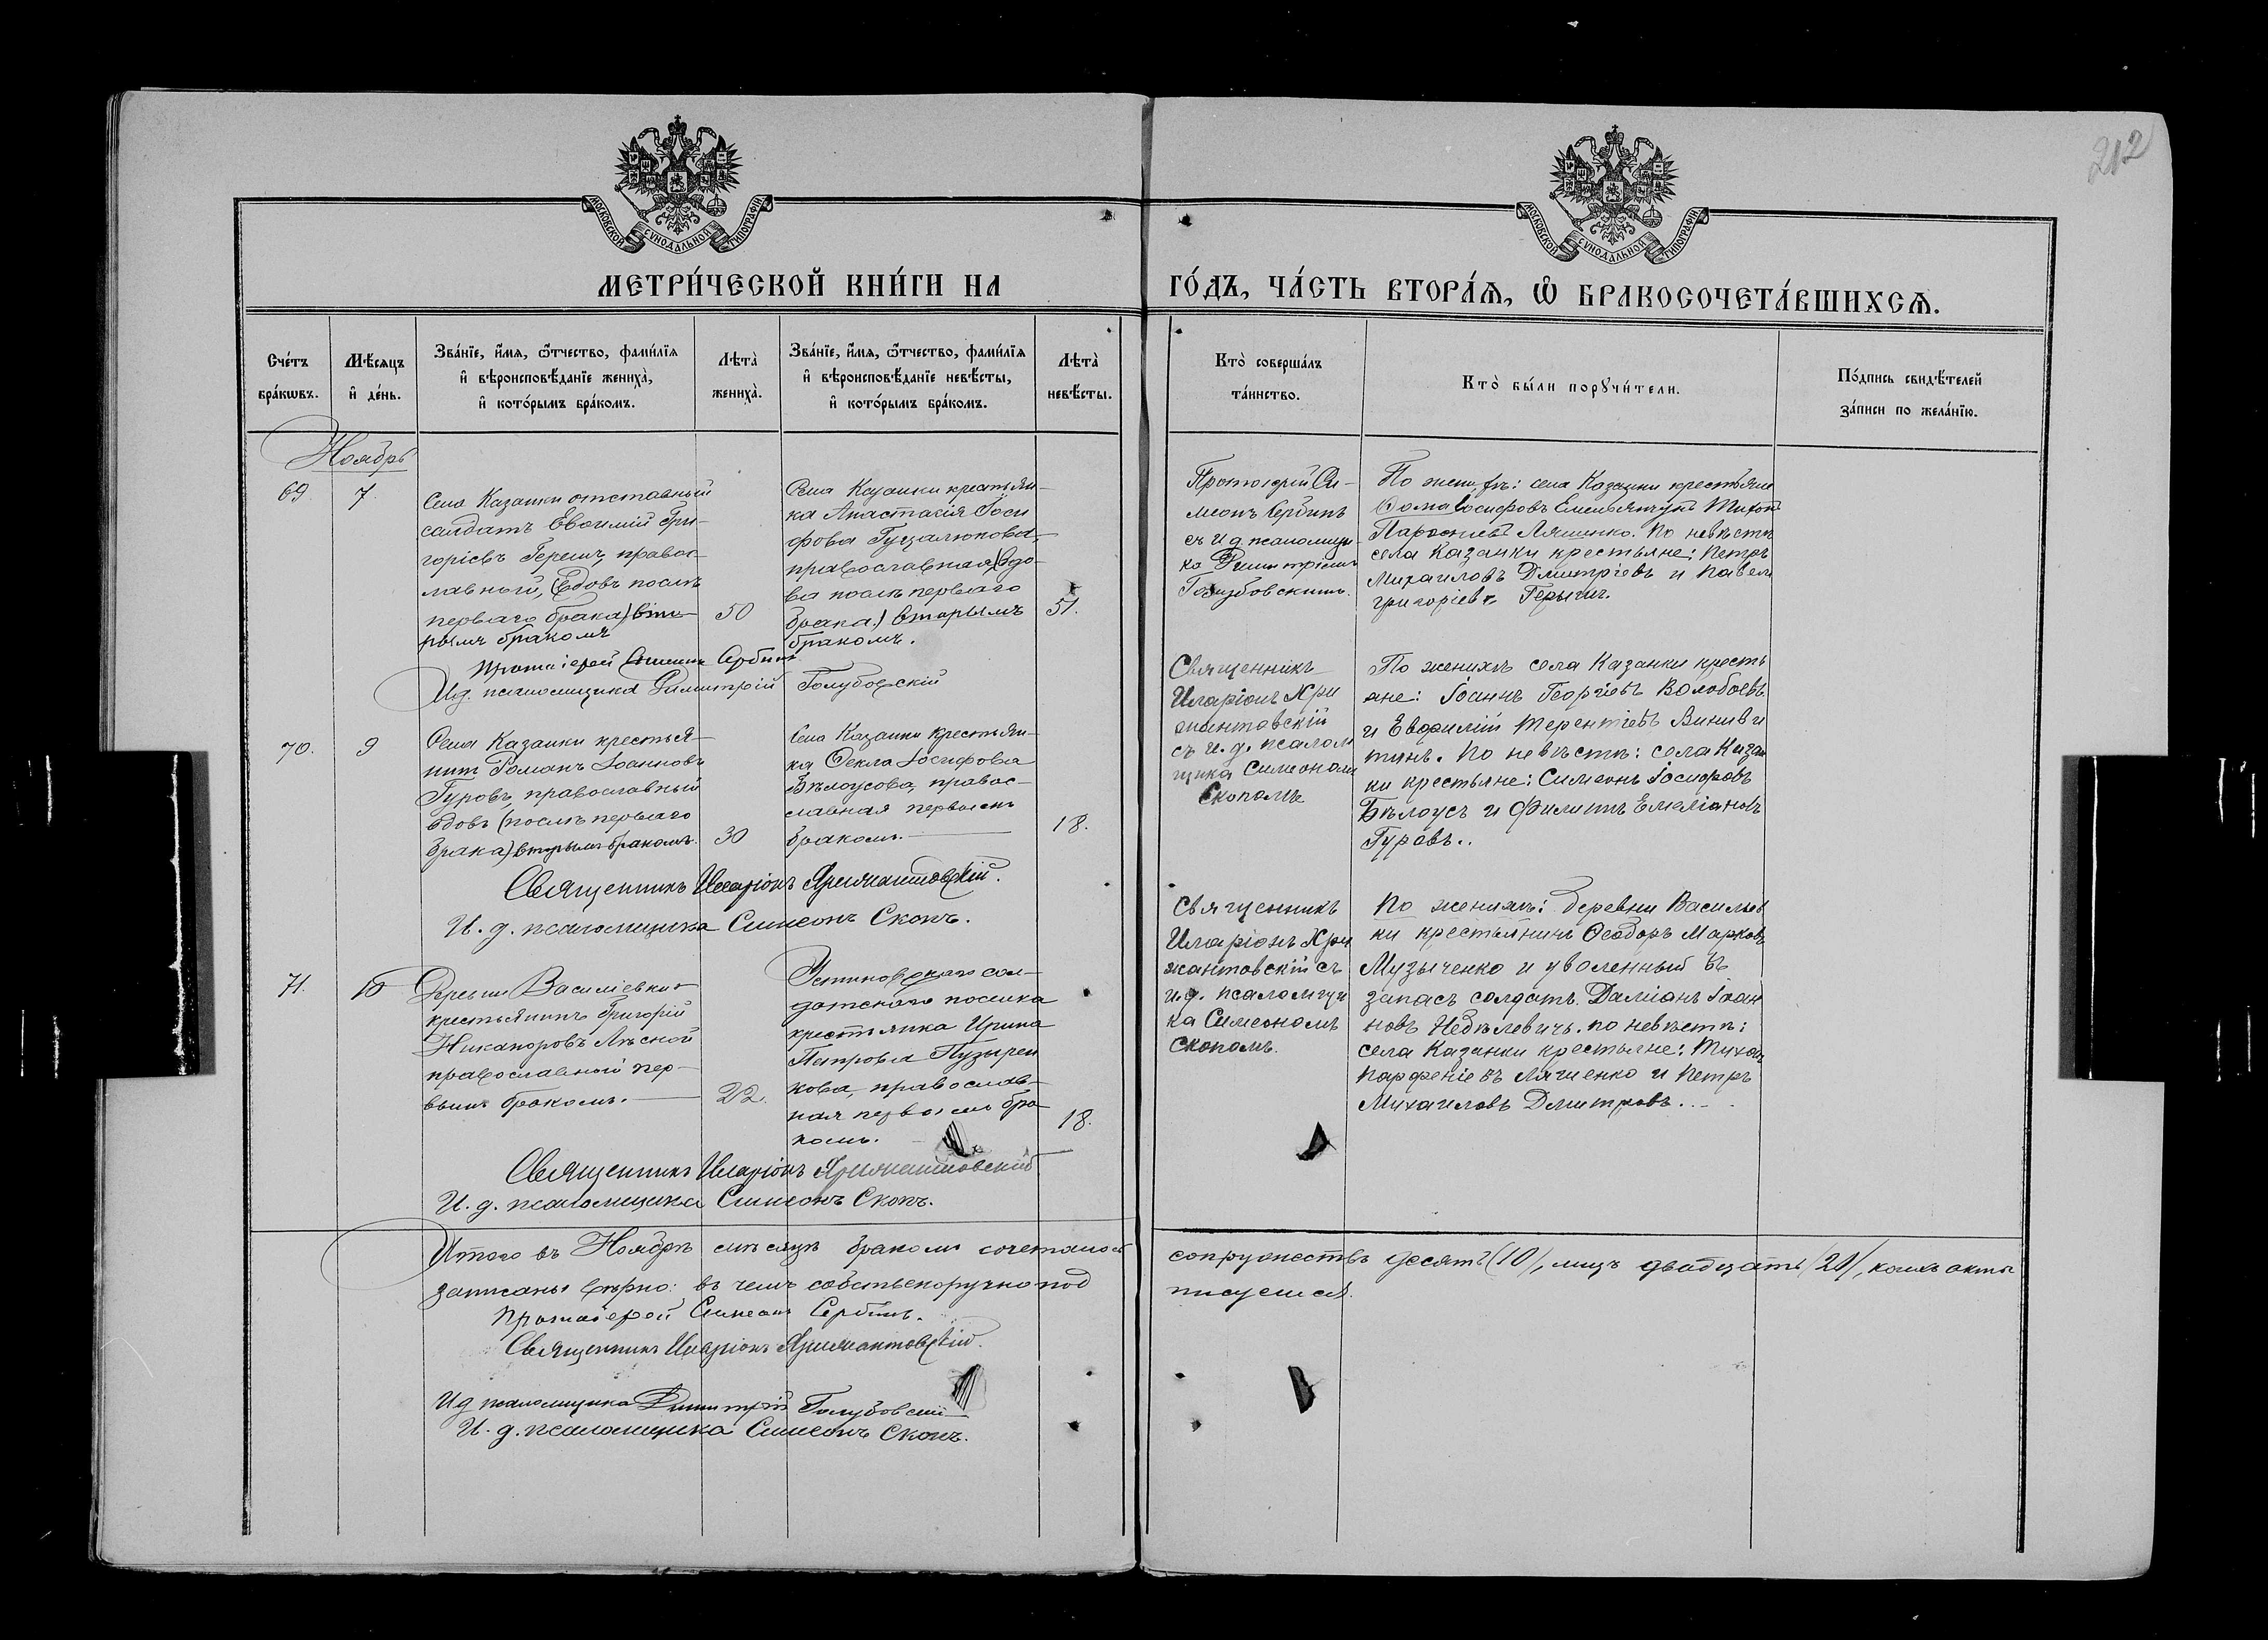 212
МОСКОВСКОЙ СѴНОДАЛЬНОЙ ТИПОГРАФІИ
МОСКОВСКОЙ СѴНОДАЛЬНОЙ ТИПОГРАФІИ
МЕТРИ́ЧЕСКОЙ КНИ́ГИ НА
ГО́ДЪ, ЧА́СТЬ ВТОРА́Ѧ, Ѽ БРАКОСОЧЕТА́ВШИХСѦ.
Сче́тъ
бра́кѡвъ.
Мѣ́сѧцъ
и҆ де́нь.
Зва́нїе, и҆́мѧ, ѻ҆́тчество, фами́лїѧ
и҆ вѣроисповѣ́данїе жениха̀,
и҆ кото́рымъ бра́комъ.
Лѣта̀
жениха̀.
Зва́нїе, и҆́мѧ, ѻ҆́тчество, фами́лїѧ
и҆ вѣроисповѣ́данїе невѣ́сты,
и҆ кото́рымъ бра́комъ.
Лѣта̀
невѣ́сты.
Кто̀ соверша́лъ
та́инство.
Кто̀ бы́ли порꙋчи́тели.
По́дпись свидѣ́телей
за́писи по жела́нїю.
Ноябрь
69.
7
Села Казанки отставный
солдатъ Евѳимій Гри-
горіевъ Герыч, правос-
лавный, (вдовъ послѣ
перваго брака) вто-
рымъ бракомъ
50
Села Казанки крестьян-
ка Анастасія Іоси
фова
православная (вдо-
ва послѣ перваго
брака.) вторымъ
бракомъ.
51.
Протоіерей Си-
меонъ Сербинъ
съ и д. псаломщи-
ка Димитріемъ
Голубовскимъ.
По жених: села Казанки крестьяне
Ѳома Іосифовъ Емельянчукъ Тихонъ
Ляшенко. По невѣстѣ
села Казанки крестьяне: Петръ
Михаиловъ Дмитріевъ и Павелъ
Григоріевъ Герычи.
Протоіерей Симеонъ Сербинъ
И д. псаломщика Димитрій Голубовскій
70.
9
Села Казанки крестья-
нинъ Романъ Іоанновъ
Гуровъ, православный
вдовъ (послѣ перваго
брака) вторымъ бракомъ.
30
Села Казанки крестьян-
ка Ѳекла Іосифова
Бѣлоусова, правос-
лавная первымъ
бракомъ.
18.
Священникъ
Иларіонъ Хри
жантовскій
съ и. д. псалом
щика Симеономъ
Скопомъ
По женихѣ села Казанки кресть
яне: Іоаннъ Георгіевъ Волобоевъ
и Евфимій Терентіевъ Винив и
тинъ. По невѣстѣ: села Казан
ки крестьяне: Симеонъ Іосифовъ
Бѣлоусъ и Филиппъ Емеліановъ
Гуровъ..
Священникъ Иларіонъ Хрижантовскій.
И. д. псаломщика Симеонъ Скопъ.
71.
10
Деревни Василіевки
крестьянинъ Григорій
Никаноровъ Лѣсной
православный пер-
вымъ бракомъ.
22.
Устиновскаго сол-
датскаго поселка
крестьянка Ирина
Петрова Пузырен
кова, православ-
ная первымъ бра
комъ.
18.
Священникъ
Иларіонъ Хри
жантовскій съ
и.д. псаломщи
ка Симеономъ
Скопомъ.
По женихѣ: деревни Васильев
ки крестьянинъ Ѳеодоръ Марковъ
Музыченко и уволенный въ
запасъ солдатъ Даміанъ Іоан
новъ Недѣлевичъ. По невѣстѣ:
села Казанки крестьяне: Тихонъ
Парфеніевъ Ляшенко и Петръ
Михаиловъ Дмитровъ.
Священникъ Иларіонъ Хрижантовскій
И. д. псаломщика Симеонъ Скопъ.
Итого въ Ноябрѣ мѣсяцѣ бракомъ сочеталось сопружествъ десять (10), лицъ двадцать (20), коихъ акты
записаны вѣрно: въ чемъ собственоручно под писуемся.
Протоіерей Симеонъ Сербинъ.
Священникъ Иларіонъ Хрижантовскій.
И д псаломщика Димитрій Голубовскій
И. д. псаломщика Симеонъ Скопъ.